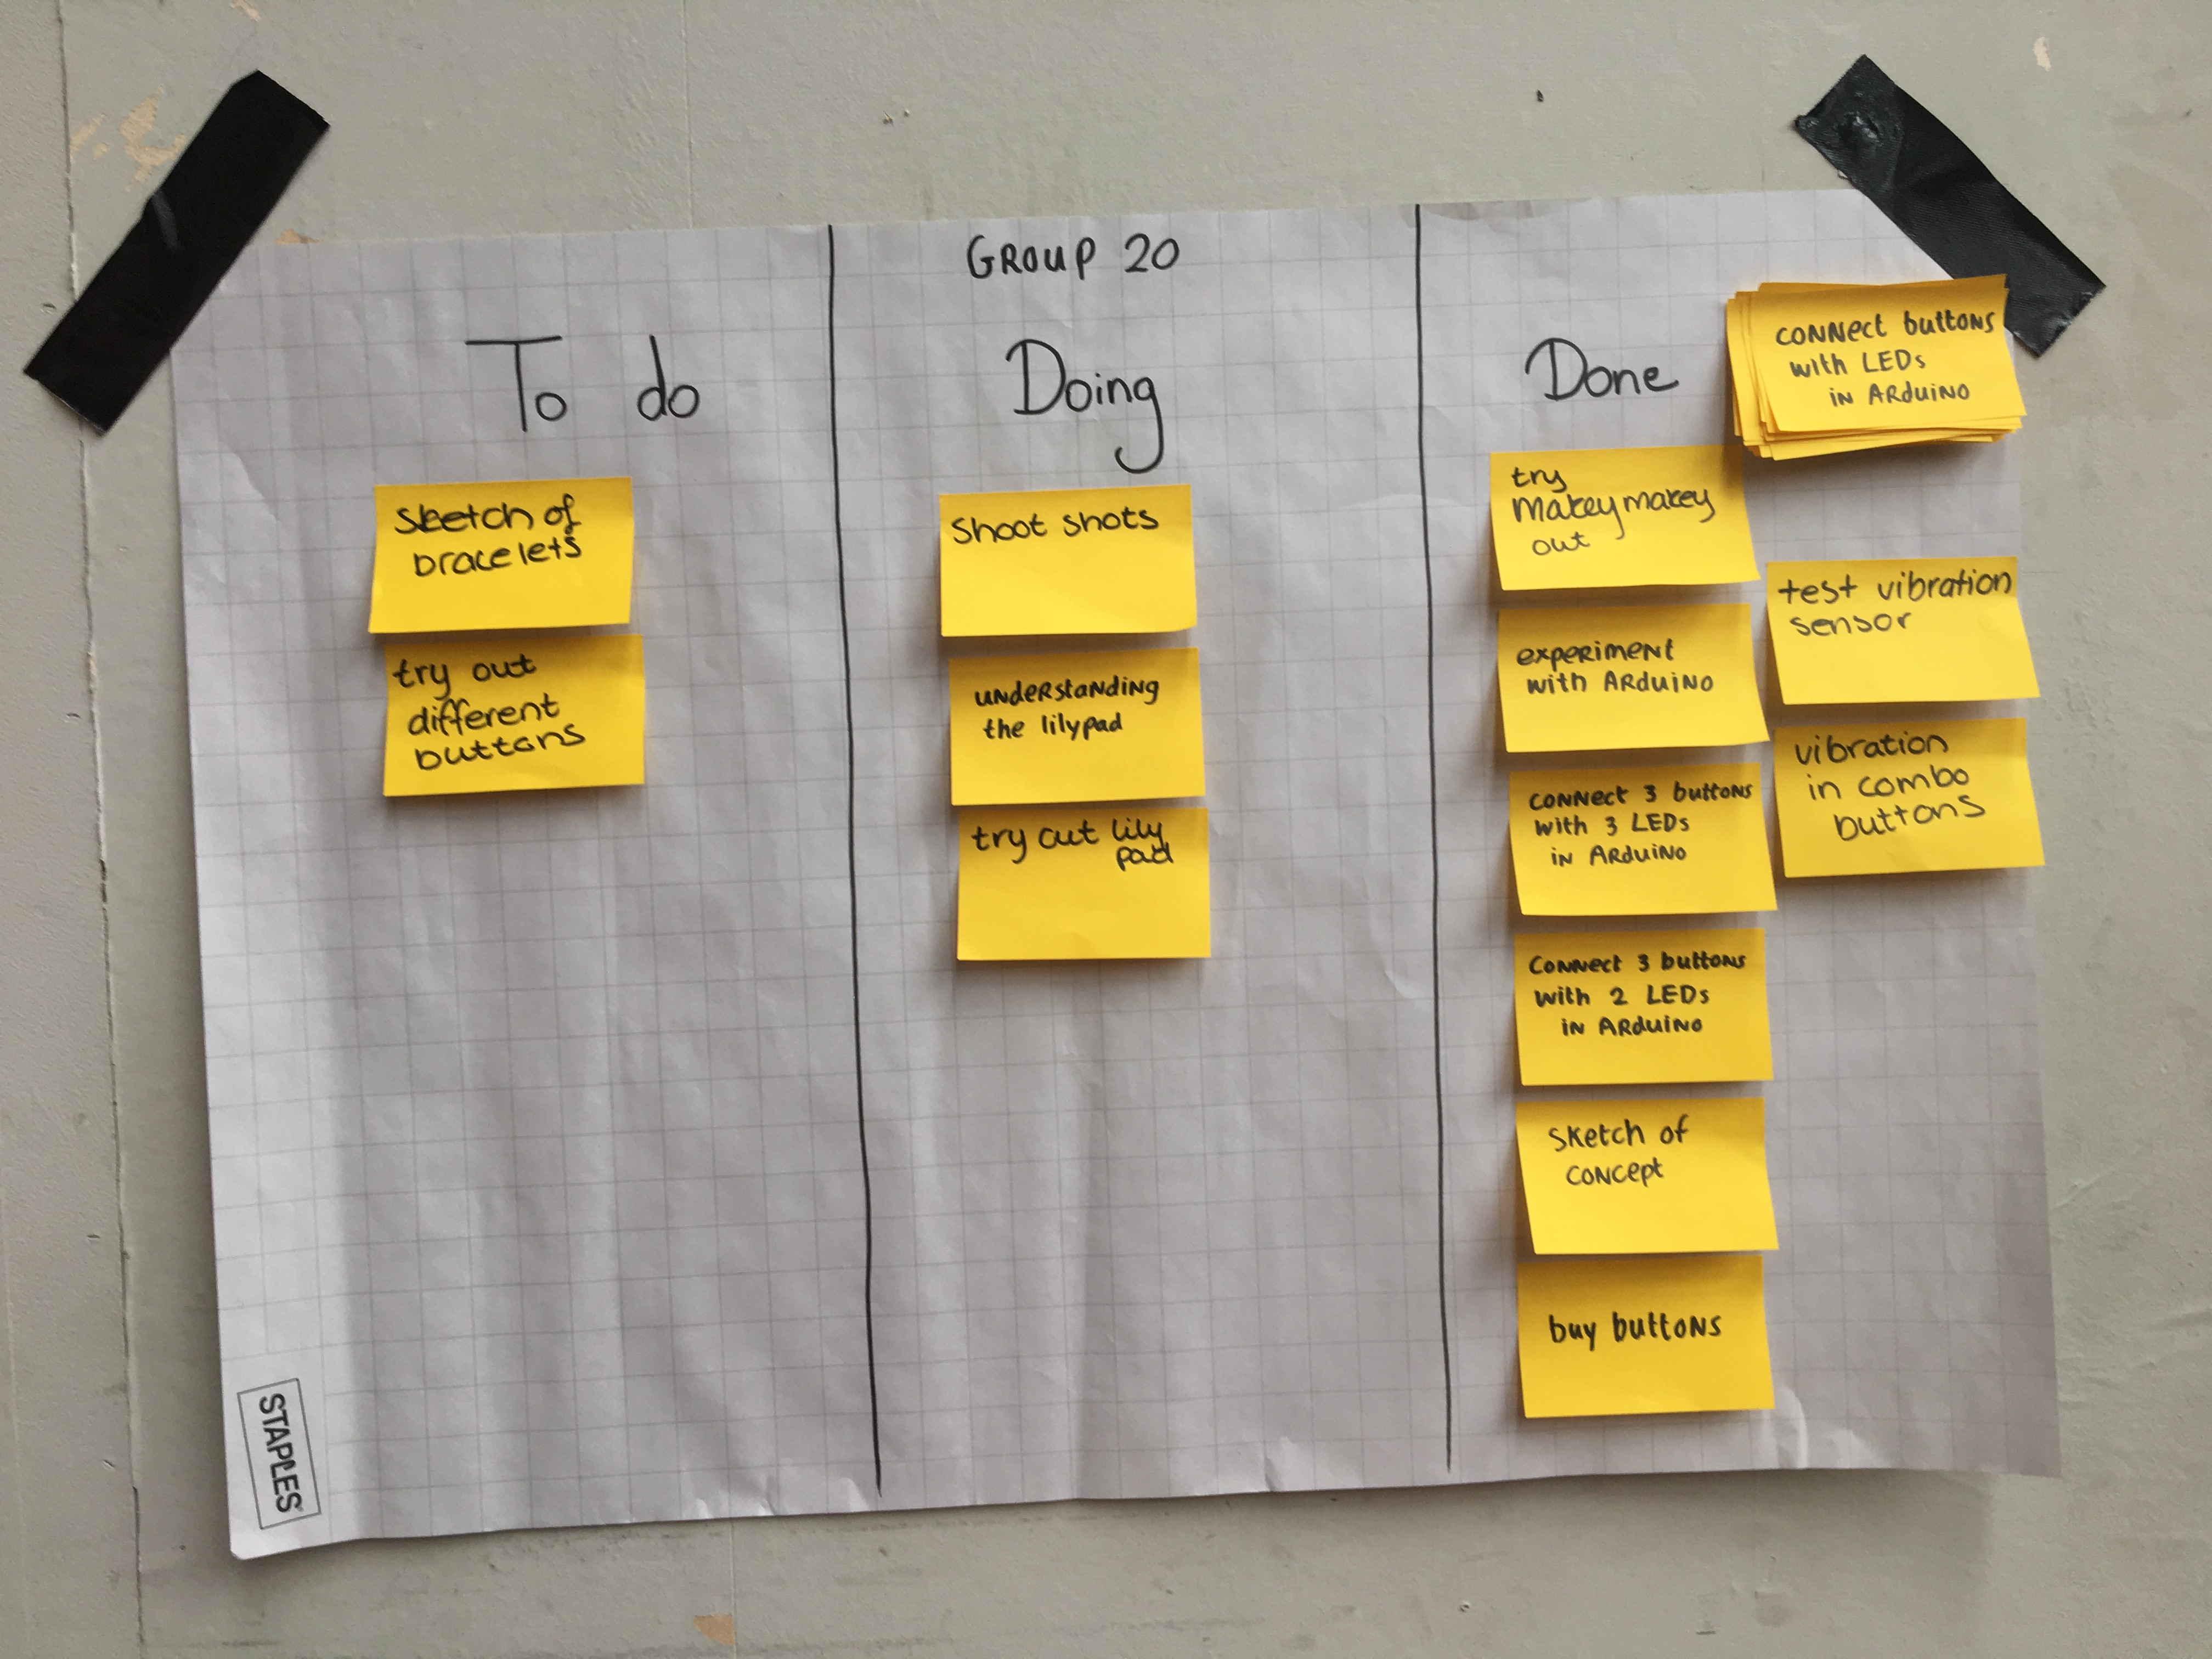 GROUP 20
To do
sketch of
bracelets
try out
different
buttons
Doing
Shoot shots
understanding
the lilypad
try out lily
pad
Done
connect buttons
with LEDs
in Arduino
try
makeymakey
out
experiment
with Arduino
connect 3 buttons
with 3 LEDs
in Arduino
connect 3 buttons
with 2 LEDs
in Arduino
sketch of
concept
buy buttons
test vibration
sensor
vibration
in combo
buttons
STAPLES